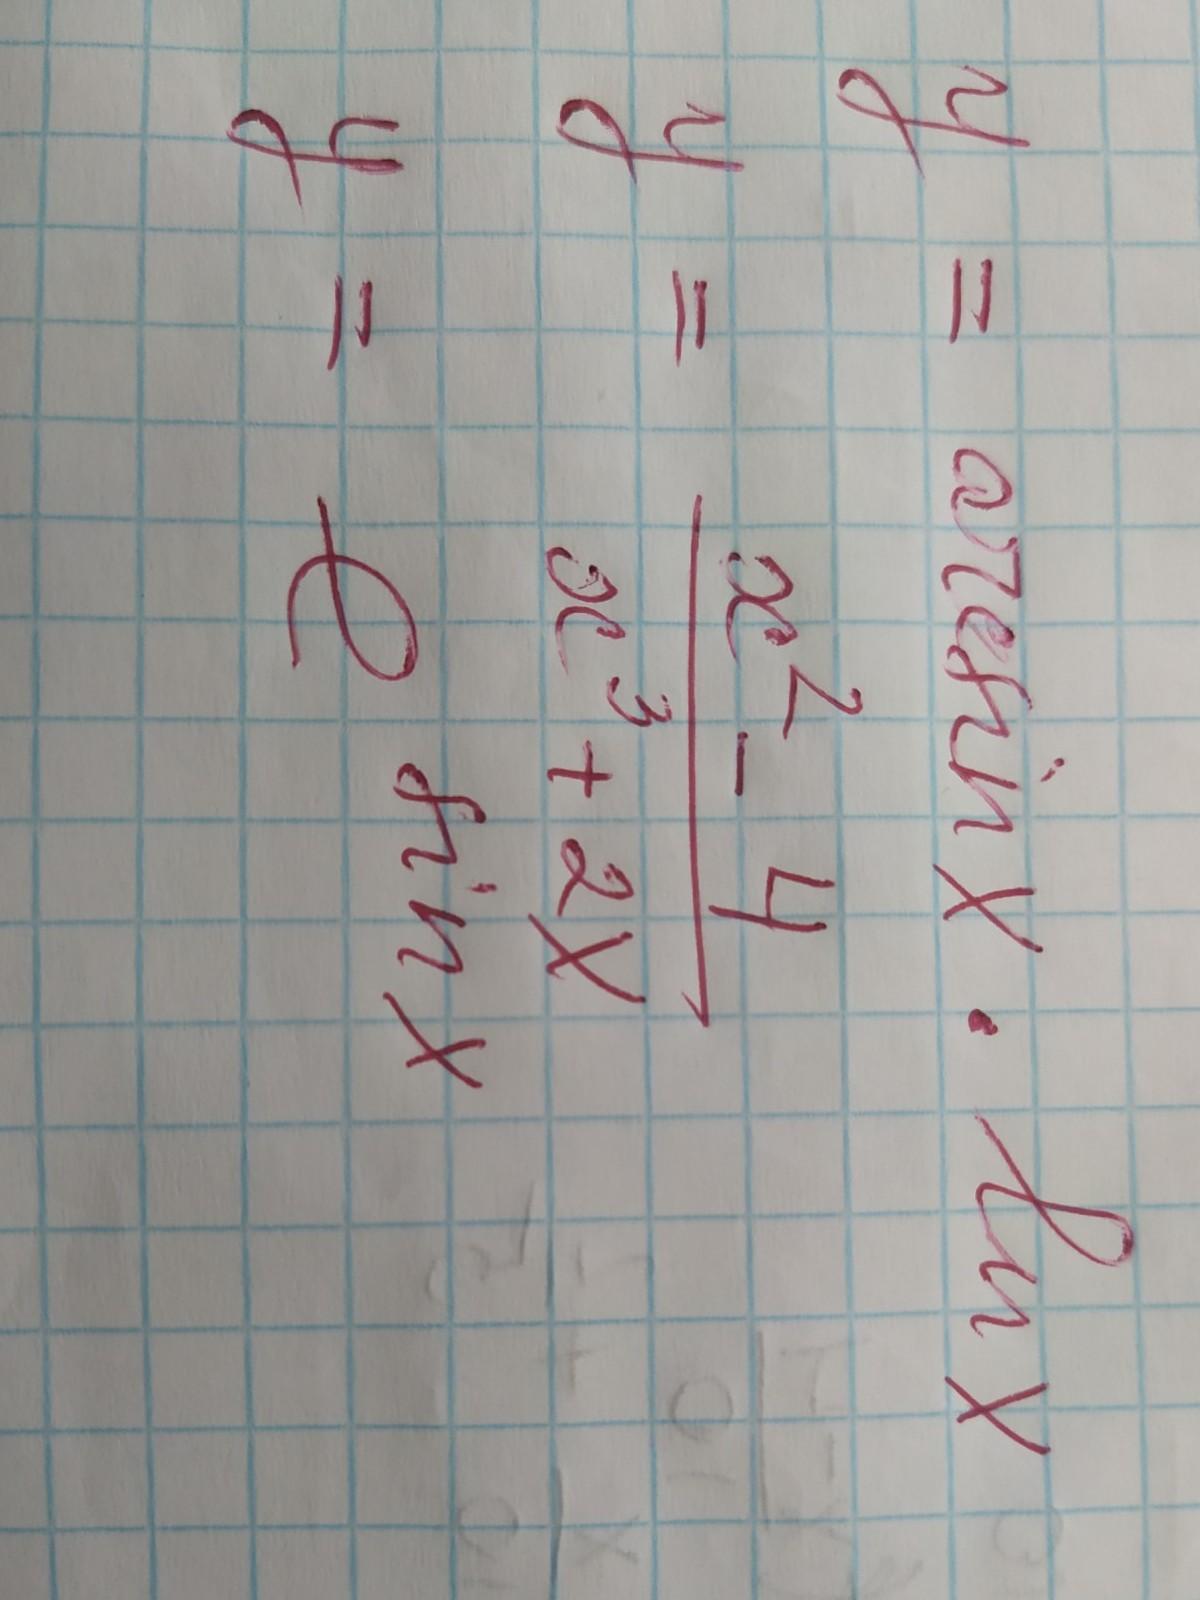 y = arcsin x · ln x
y = (x² - 4) / (x³ + 2x)
y = e^sin x